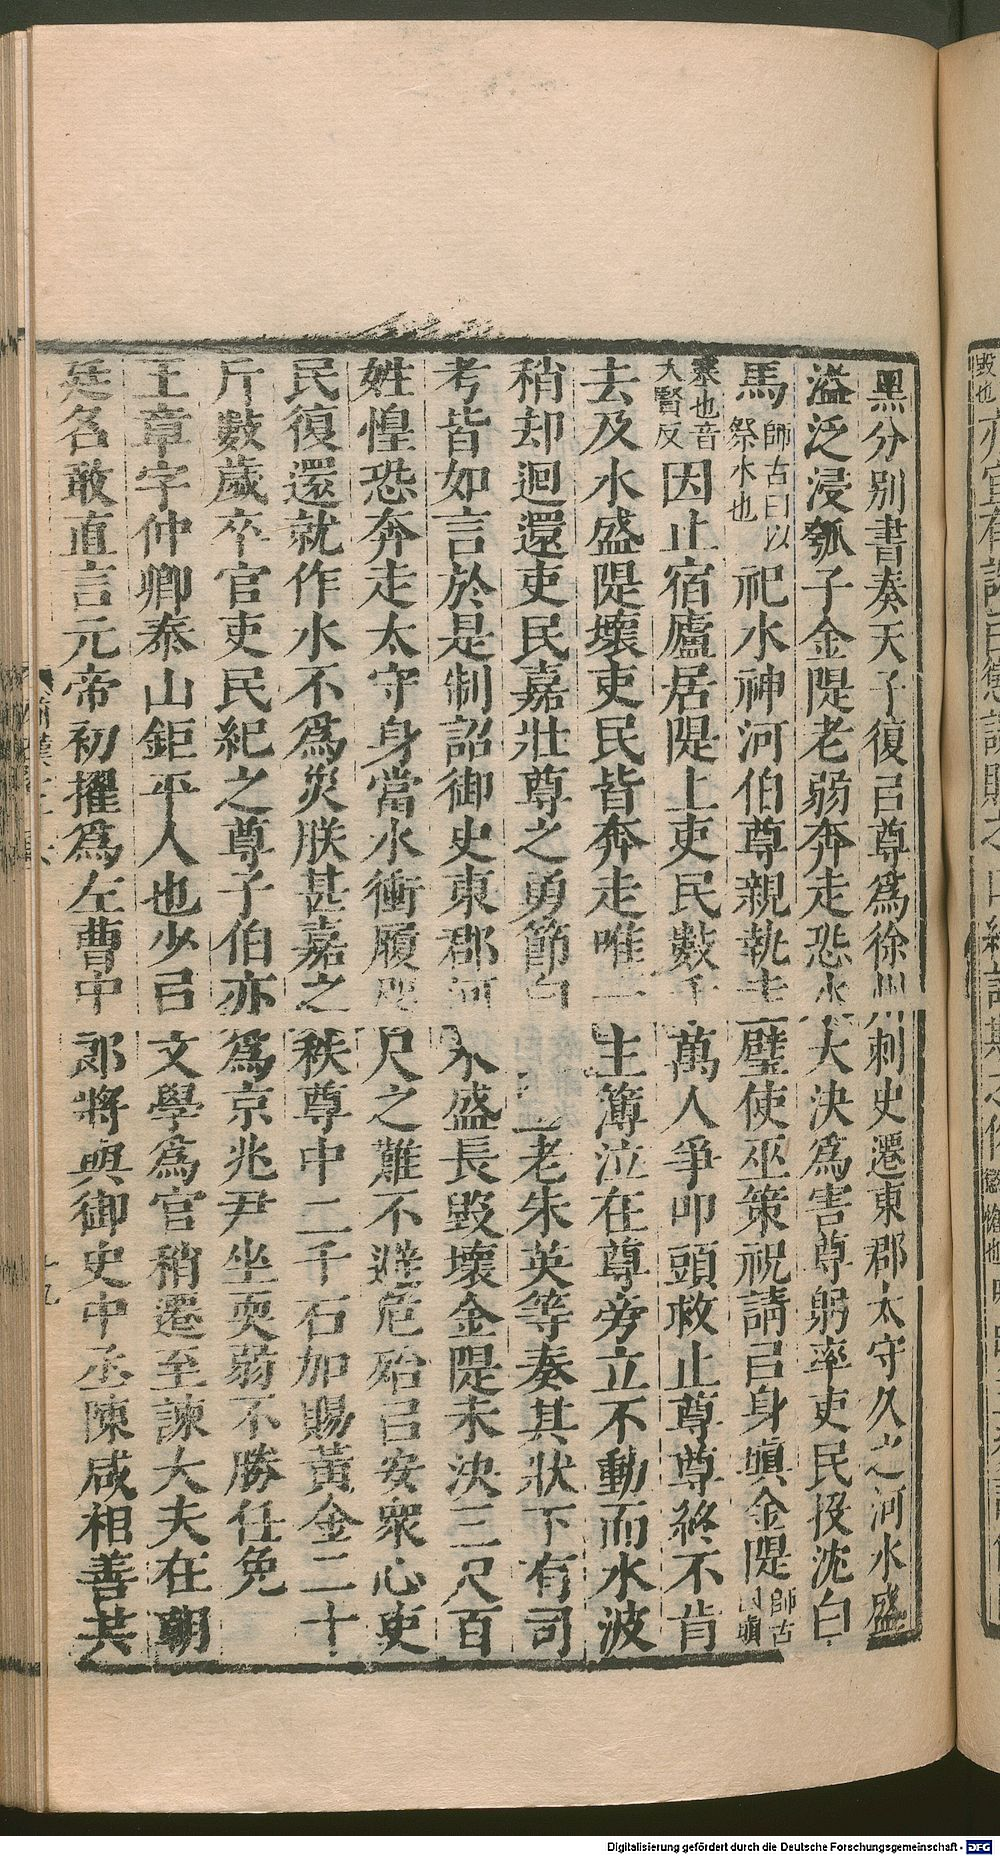 黑分別書奏天子復㠯尊爲徐州刺史遷東郡太守久之河水盛
溢泛浸瓠子金隄老弱奔走恐水大決爲害尊躬率吏民投沈白
馬師古曰以祭水也祀水神河伯尊親執圭璧使巫策祝請㠯身塡金隄師古曰塡
塞也音大賢反因止宿廬居隄上吏民數千萬人爭叩頭救止尊尊終不肯
去及水盛隄壞吏民皆奔走唯一主簿泣在尊旁立不動而水波
稍却迴還吏民嘉壯尊之勇節白老朱英等奏其狀下有司
考皆如言於是制詔御史東郡河水盛長毀壞金隄未決三尺百
姓惶恐奔走太守身當水衝履咫尺之難不避危殆㠯安衆心吏
民復還就作水不爲災朕甚嘉之秩尊中二千石加賜黃金二十
斤數歲卒官吏民紀之尊子伯亦爲京兆尹坐耎弱不勝任免
王章字仲卿泰山鉅平人也少㠯文學爲官稍遷至諫大夫在朝
廷名敢直言元帝初擢爲左曹中郎將與御史中丞陳咸相善共
十九
Digitalisierung gefördert durch die Deutsche Forschungsgemeinschaft - DFG